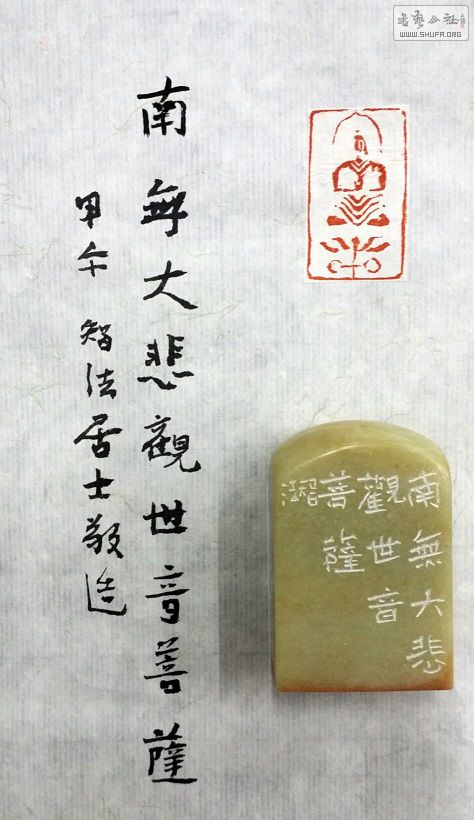 南無大悲觀世音菩薩
甲午 智法居士敬造
南無大悲
觀世音
菩薩
智法
書藝公社
WWW.SHUFA.ORG